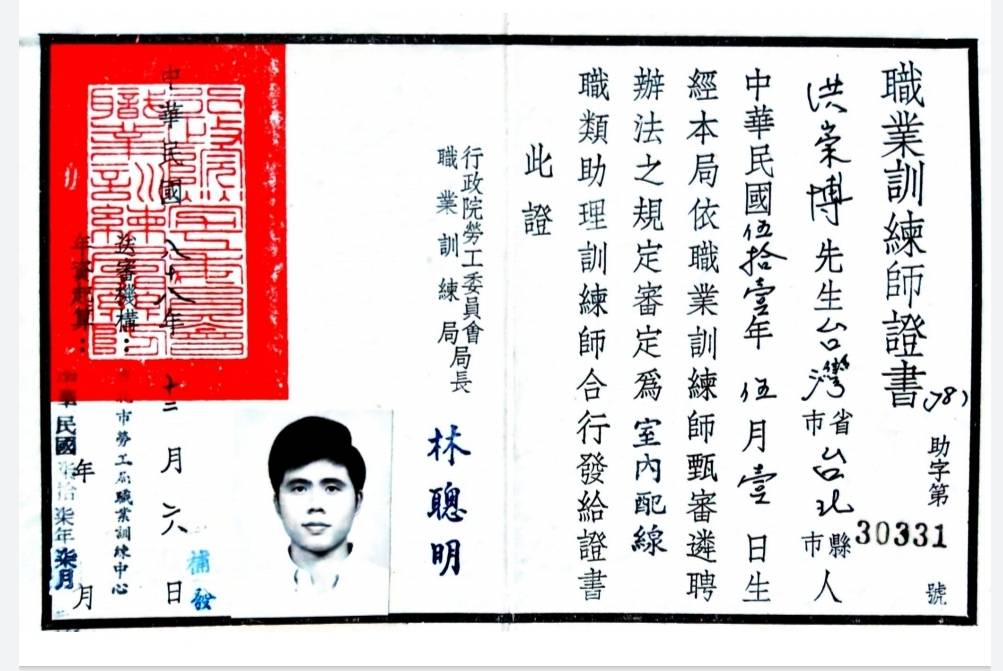 職業訓練師證書
(78)助字第30331號
洪崇博先生台灣省市台北縣市人
中華民國伍拾壹年伍月壹日生
經本局依職業訓練師甄審遴聘
辦法之規定審定為室內配線
職類助理訓練師合行發給證書
此證
行政院勞工委員會
職業訓練局局長
林聰明
中華民國八十八年十二月二八日
補發
送審機構：
北市勞工局職業訓練中心
年資起算：
年月
中華民國柒拾柒年柒月